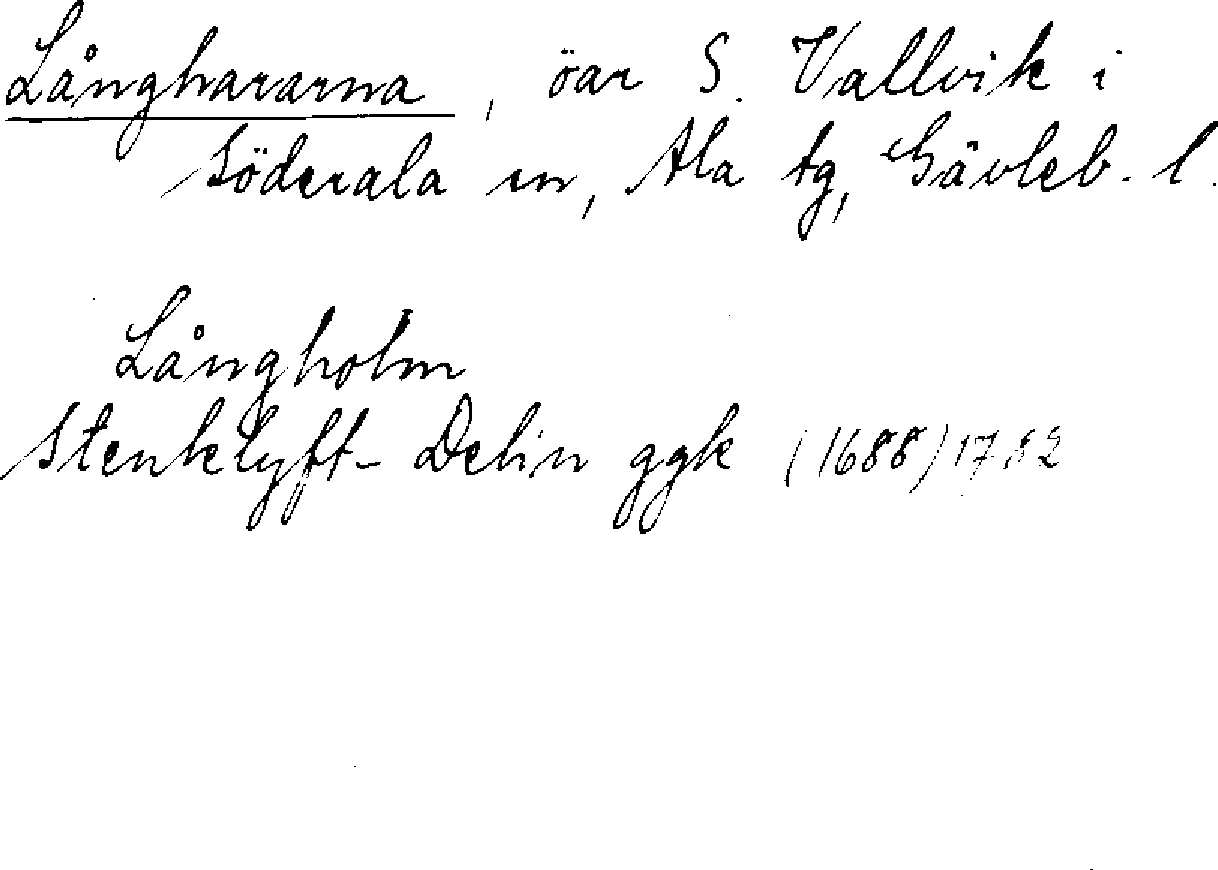 Långhararna, öar S. Vallvik i
Söderala sn, Ala tg, Gävleb. l.
Långholm
Stenklyft- Delin ggk (1688) 1782